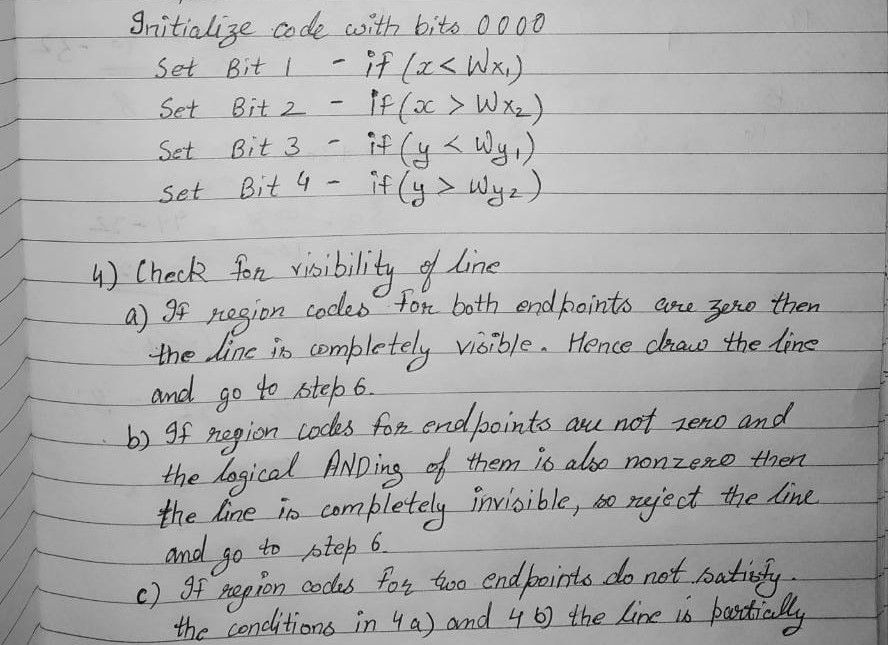 Initialize code with bits 0000
Set Bit 1 - if (x < Wx₁)
Set Bit 2 - if (x > Wx₂)
Set Bit 3 - if (y < Wy₁)
Set Bit 4 - if (y > Wy₂)
4) Check for visibility of line
a) If region codes for both endpoints are zero then
the line is completely visible. Hence draw the line
and go to step 6.
b) If region codes for endpoints are not zero and
the logical ANDing of them is also nonzero then
the line is completely invisible, so reject the line
and go to step 6.
c) If region codes for two endpoints do not satisfy
the conditions in 4a) and 4b) the line is partially